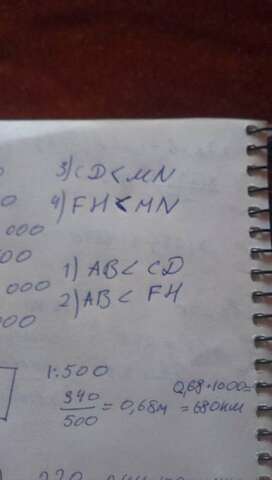 0
3) CD < MN
0
4) FH < MN
000
00
1) AB < CD
000
2) AB < FH
000
1:500
340/500 = 0,68м
0,68·1000=
=680мм